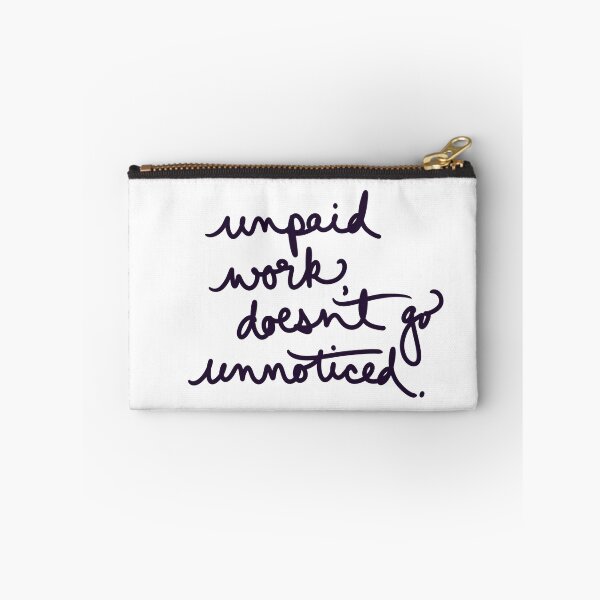 unpaid
work
doesn't go
unnoticed.